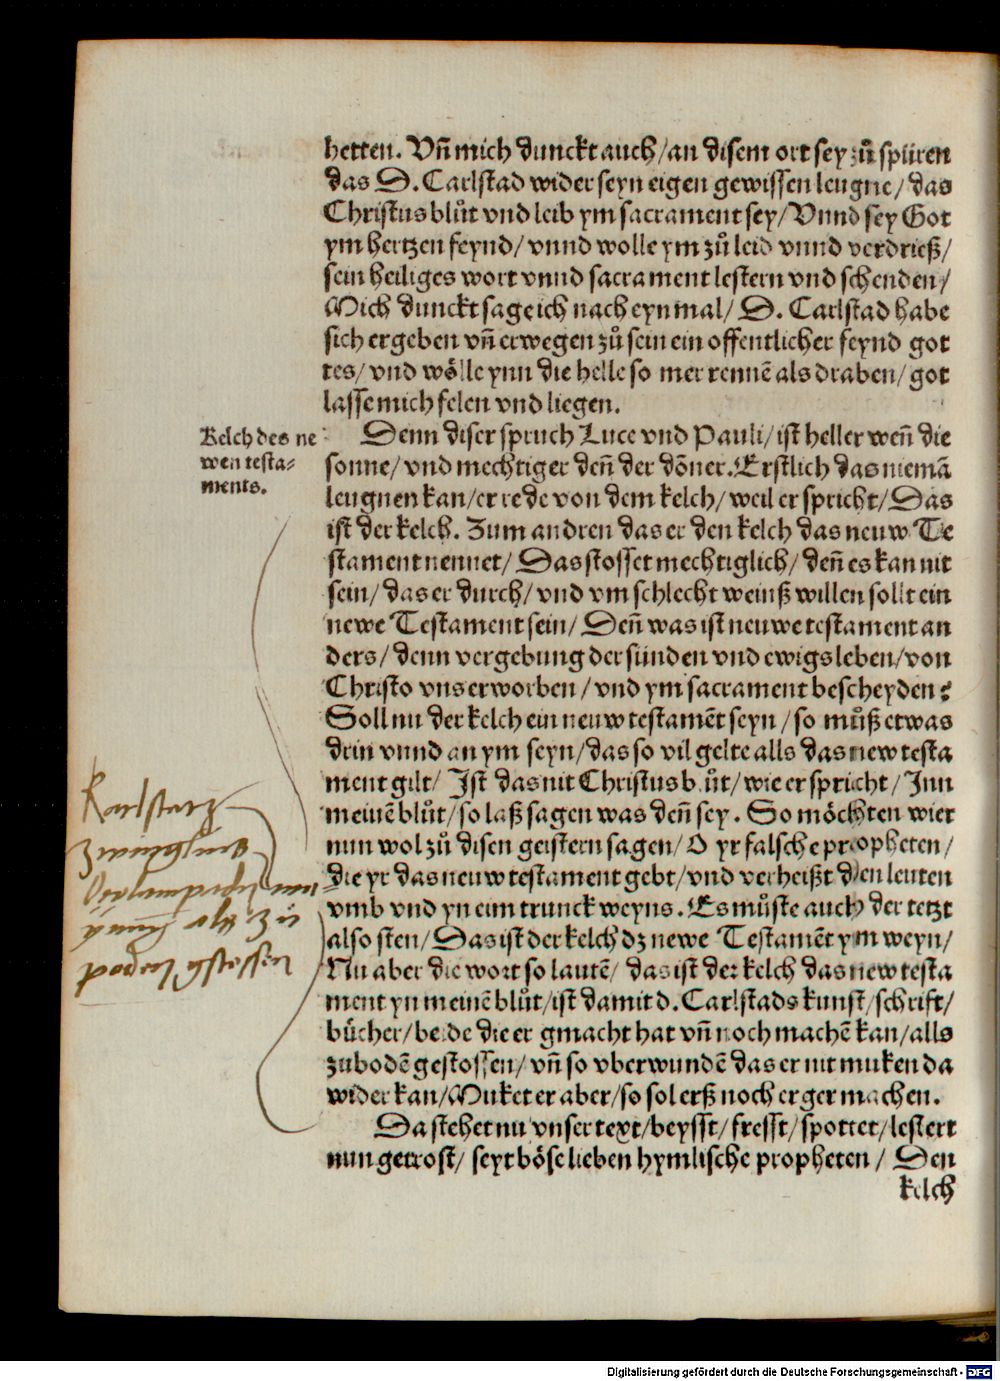 hetten. Vñ mich dunckt auch/ an disem ort sey zů spüren
das D. Carlstad wider seyn eigen gewissen leugne/ das
Christus blůt vnd leib ym sacrament sey/ Vnnd sey Got
ym hertzen feynd/ vnnd wolle ym zů leid vnnd verdrieß/
sein heiliges wort vnnd sacrament lestern vnd schenden/
Mich dunckt sage ich nach eyn mal/ D. Carlstad habe
sich ergeben vñ erwegen zů sein ein offentlicher feynd got
tes/ vnd wölle ynn die helle so mer rennē als draben/ got
lasse mich felen vnd liegen.
Kelch des ne
wen testa-
ments.
Denn diser spruch Luce vnd Pauli/ ist heller weñ die
sonne/ vnd mechtiger deñ der dōner. Erstlich das niemā
leugnen kan/ er rede von dem kelch/ weil er spricht/ Das
ist der kelch. Zum andren das er den kelch das neuw Te
stament nennet/ Das stosset mechtiglich/ deñ es kan nit
sein/ das er durch/ vnd vm schlecht weinß willen sollt ein
newe Testament sein/ Deñ was ist neuwe testament an
ders/ denn vergebung der sünden vnd ewigs leben/ von
Christo vns erworben/ vnd ym sacrament bescheyden?
Soll nu der kelch ein neuw testamēt seyn/ so můß etwas
drin vnnd an ym seyn/ das so vil gelte alls das new testa
ment gilt/ Ist das nit Christus blůt/ wie er spricht/ Inn
meinē blůt/ so laß sagen was deñ sey. So möchten wier
nun wol zů disen geistern sagen/ O yr falsche propheten/
die yr das neuw testament gebt/ vnd verheißt den leuten
vmb vnd yn eim trunck weyns. Es můste auch der tetzt
also sten/ Das ist der kelch dz newe Testamēt ym weyn/
Nu aber die wort so lautē/ das ist der kelch das new testa
ment yn meinē blůt/ ist damit d. Carlstads kunst/ schrift/
bücher/ beide die er gmacht hat vñ noch machē kan/ alls
zu bodē gestossen/ vñ so vberwundē das er nit muken da
wider kan/ Muket er aber/ so sol erß noch erger machen.
Da stehet nu vnser text/ beysst/ fresst/ spottet/ lestert
nun getrost/ seyt böse lieben hymlische propheten/ Den
kelch
Digitalisierung gefördert durch die Deutsche Forschungsgemeinschaft - DFG